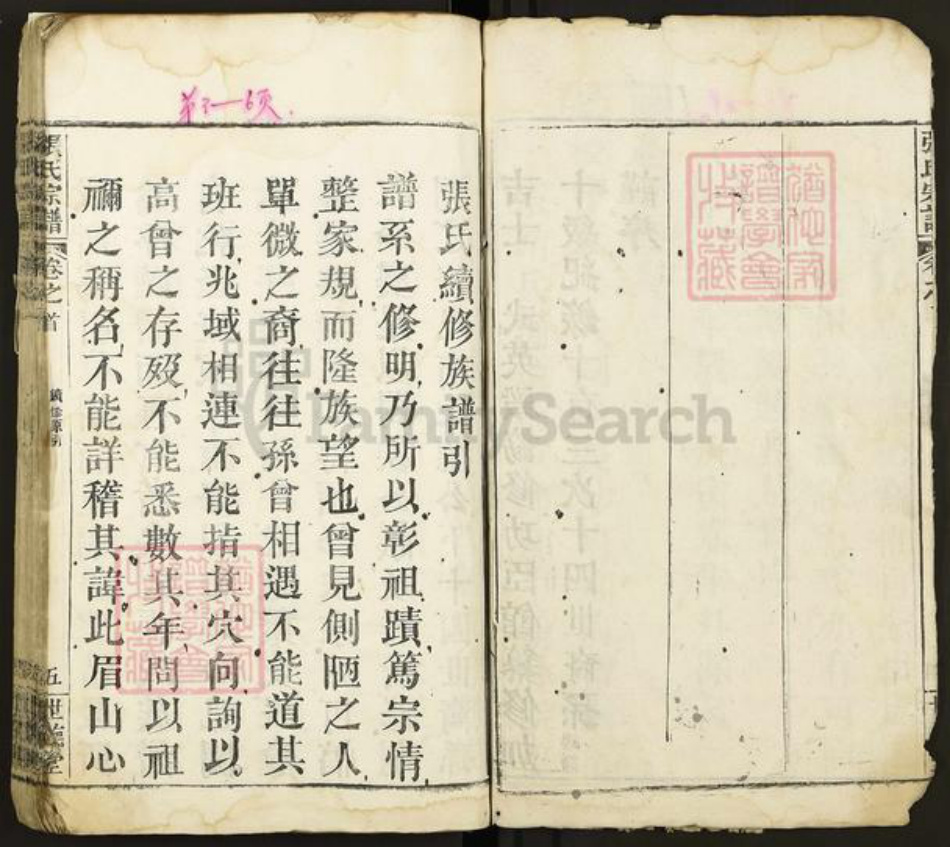 張氏續修族譜引
譜系之修明乃所以彰祖蹟篤宗情
整家規而隆族望也曾見側陋之人
單微之裔往往孫曾相遇不能道其
班行兆域相連不能指其穴向詢以
高曾之存歿不能悉數其年問以祖
禰之稱名不能詳稽其諱此眉山心
張氏宗譜
卷之首
五
世德堂
FamilySearch